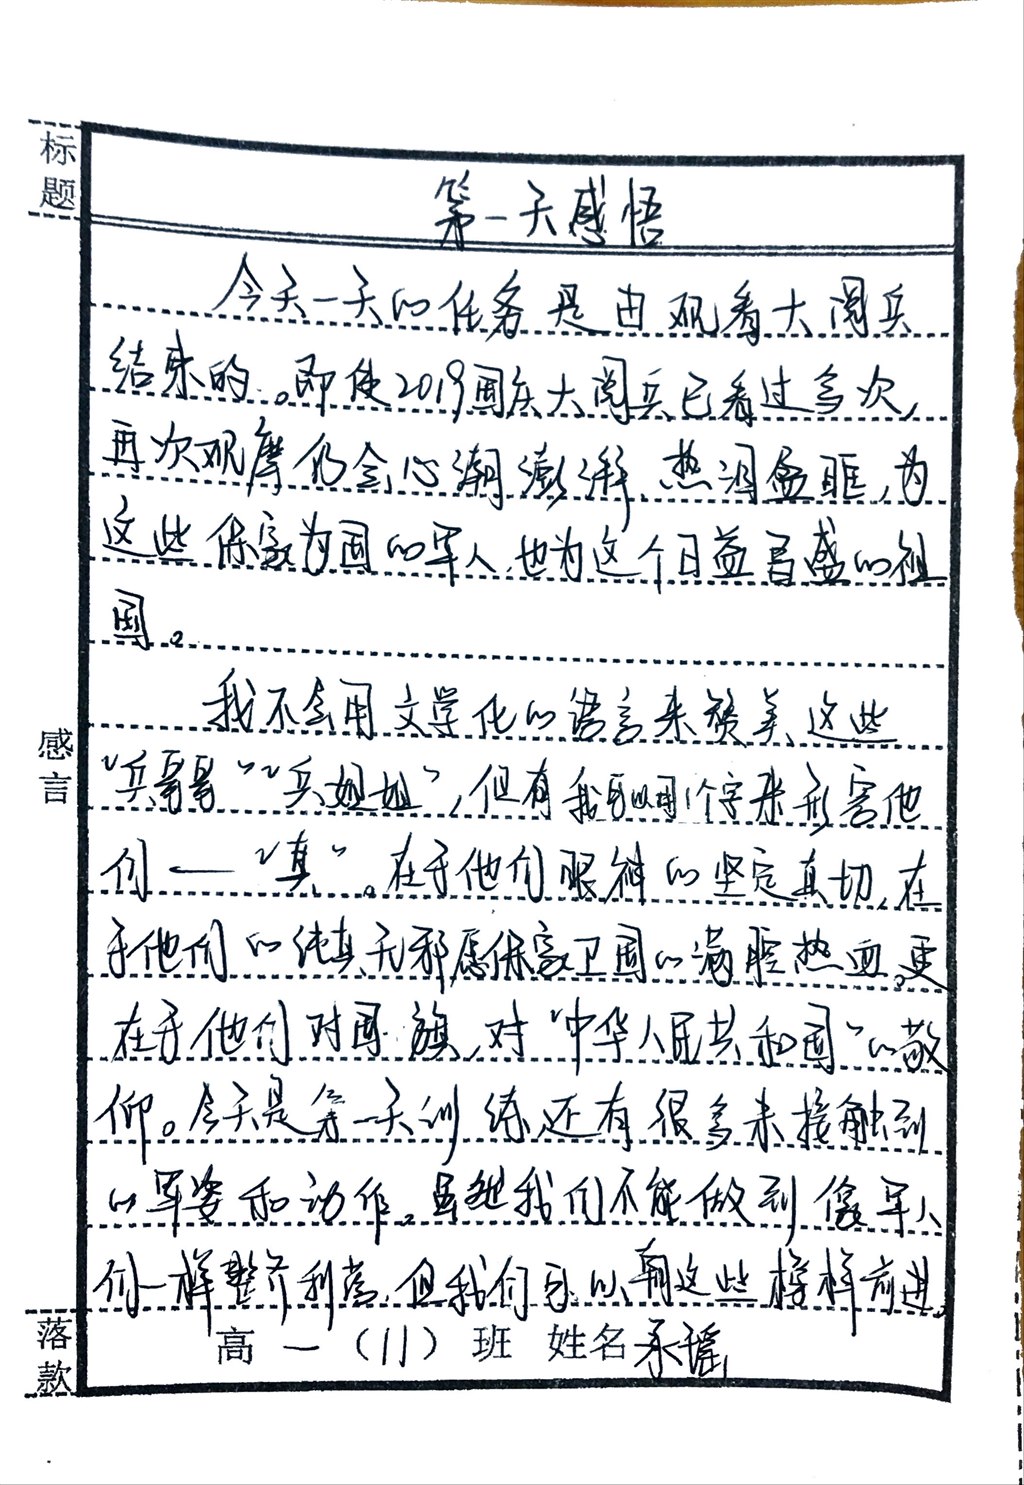 标题
第一天感悟
今天一天的任务是由观看大阅兵
结束的。即使2019国庆大阅兵已看过多次,
再次观摩仍会心潮澎湃、热泪盈眶,为
这些保家为国的军人,也为这个日益昌盛的祖
国。
我不会用文学化的语言来赞美这些
感言
“兵哥哥”“兵姐姐”,但有我可以用1个字来形容他
们——“真”。在于他们眼神的坚定真切,在
于他们的纯真无邪,愿保家卫国的满腔热血,更
在于他们对国旗,对“中华人民共和国”的敬
仰。今天是第一天训练,还有很多未接触到
的军姿和动作。虽然我们不能做到像军人
们一样整齐利落,但我们可以朝这些榜样前进。
落款
高一(11)班 姓名承瑶